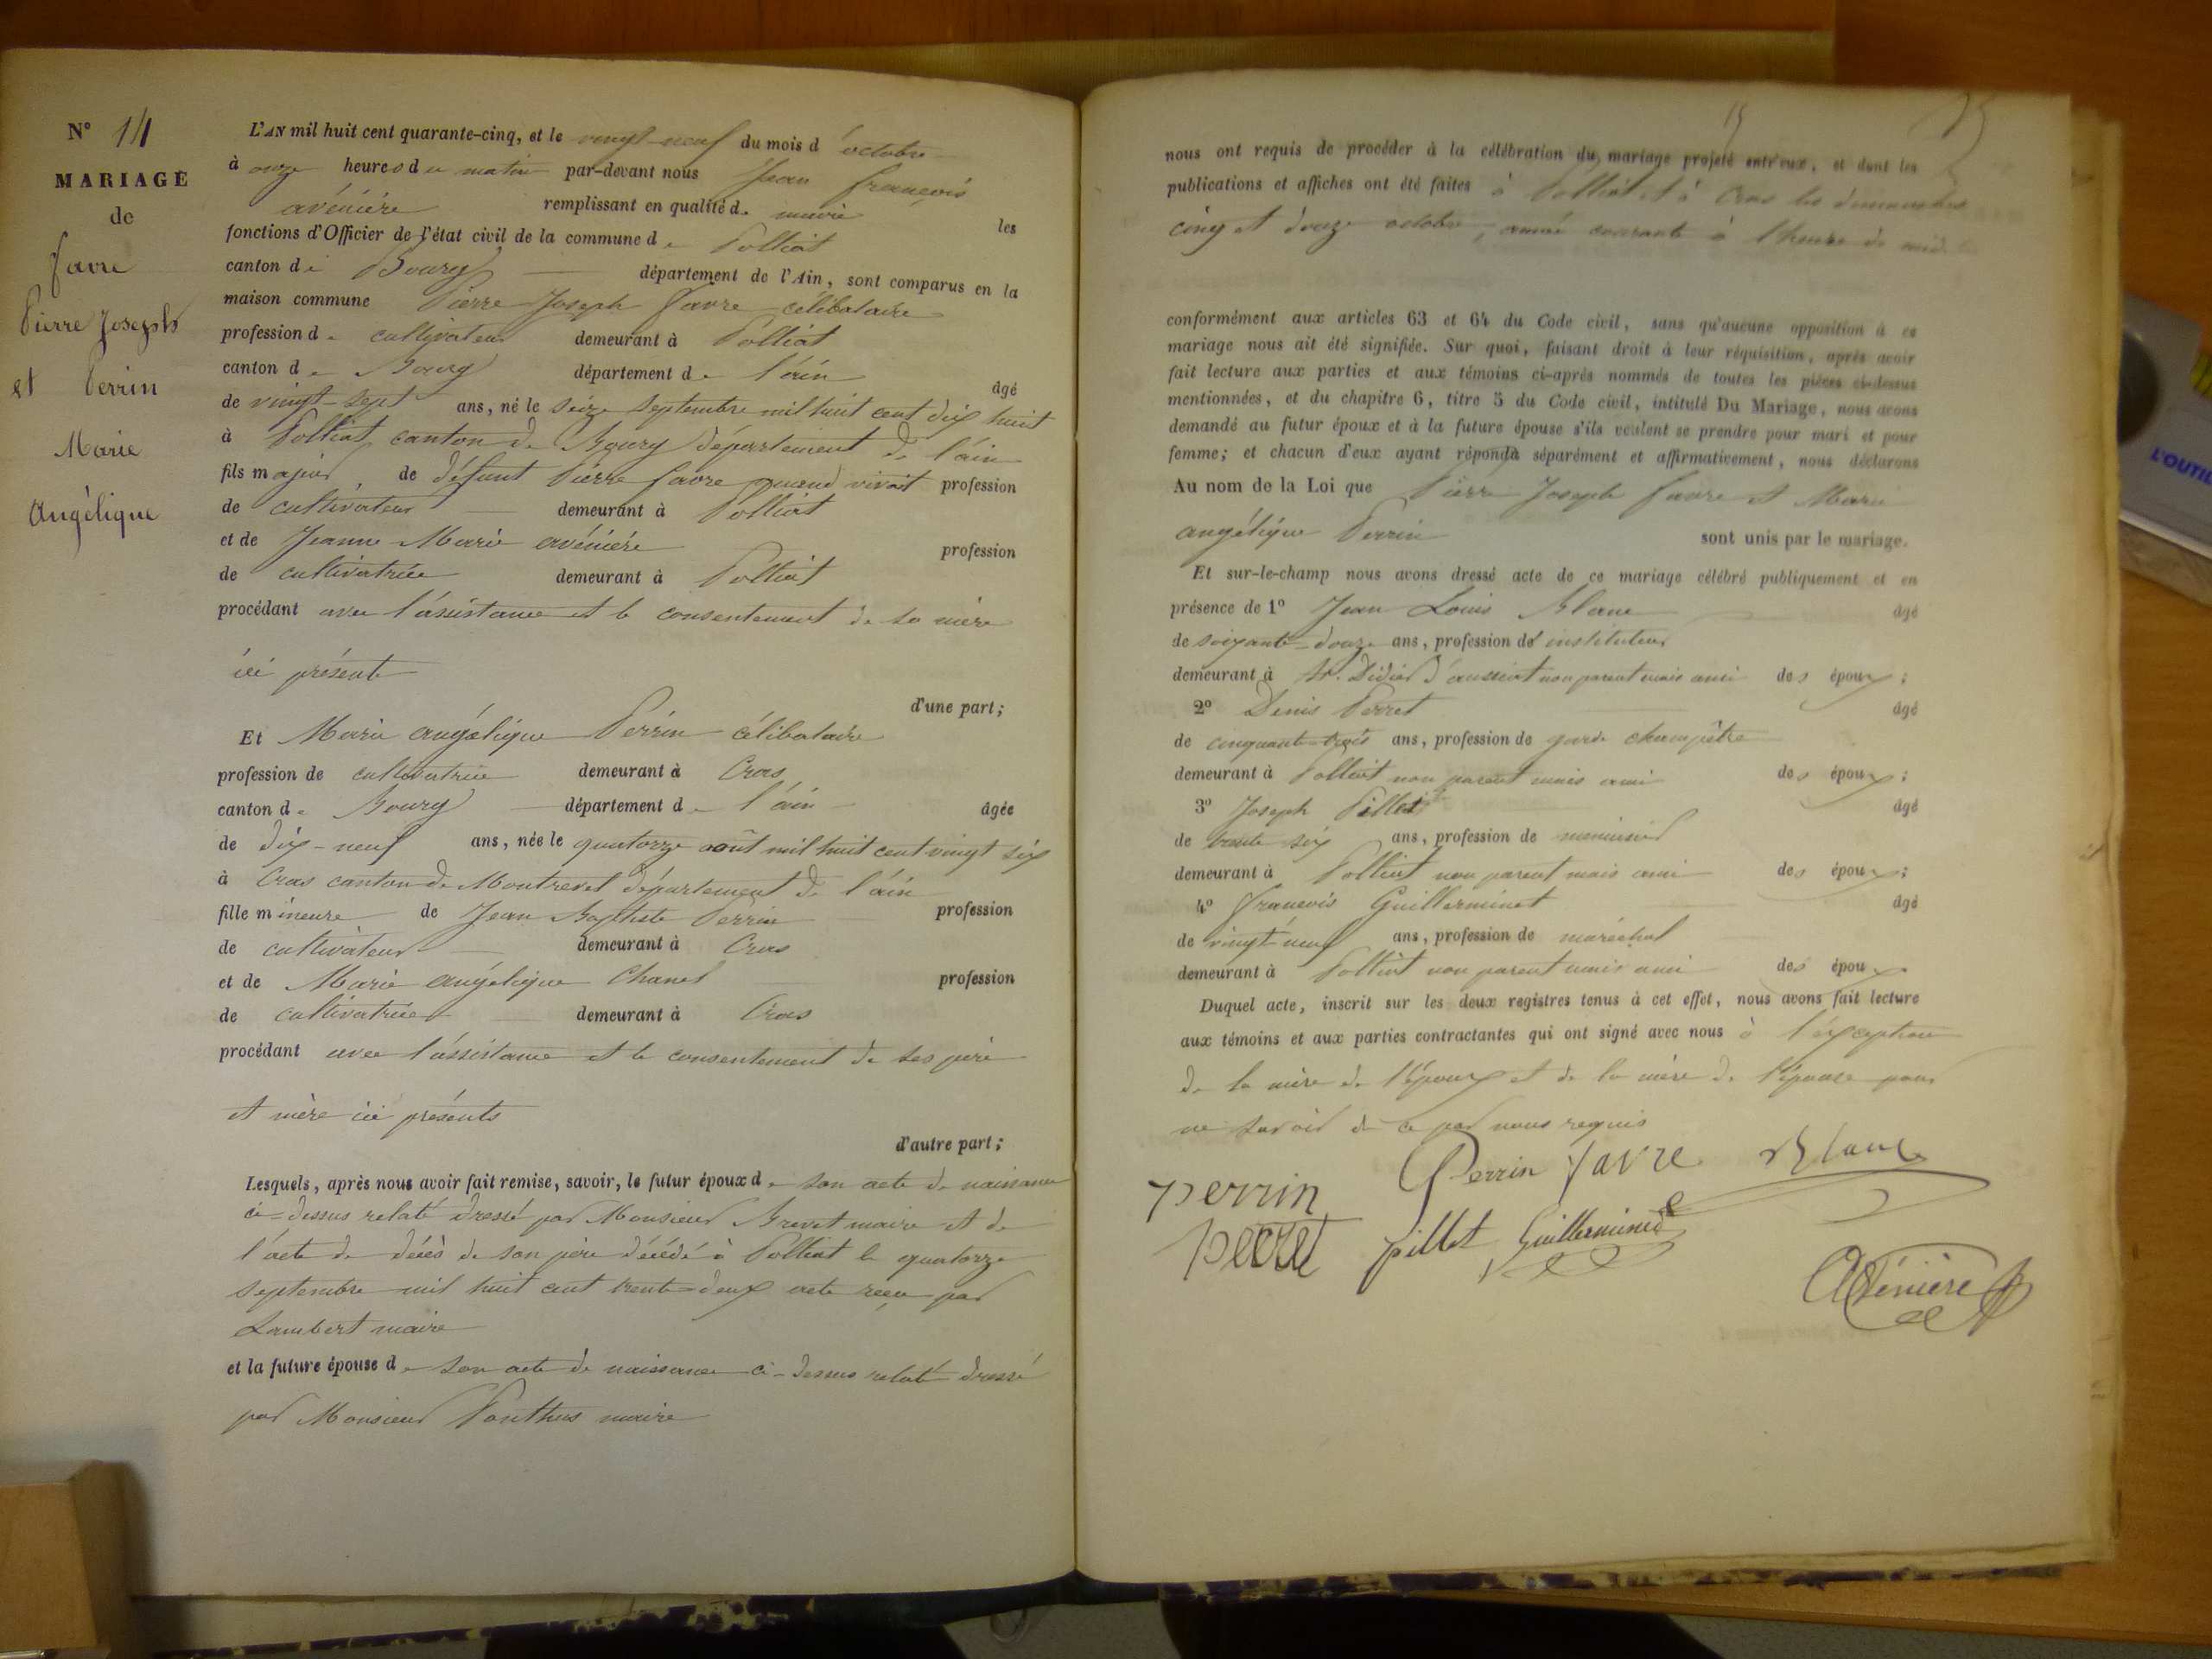 N° 14
MARIAGE
de
favre
Pierre Joseph
et Perrin
Marie
Angélique
L'AN mil huit cent quarante-cinq, et le vingt-neuf du mois d'octobre
à onze heures du matin par-devant nous Jean françois
avénière remplissant en qualité de maire les
fonctions d'Officier de l'état civil de la commune de Polliat
canton de Bourg département de l'Ain, sont comparus en la
maison commune Pierre Joseph favre célibataire
profession de cultivateur demeurant à Polliat
canton de Bourg département de l'ain âgé
de vingt-sept ans, né le seize septembre mil huit cent dix huit
à Polliat canton de Bourg département de l'ain
fils majeur de défunt Pierre favre quand vivait profession
de cultivateur demeurant à Polliat
et de Jeanne Marie avénière profession
de cultivatrice demeurant à Polliat
procédant avec l'assistance et le consentement de sa mère
ici présente
d'une part;
Et Marie angélique Perrin célibataire
profession de cultivatrice demeurant à Cras
canton de Bourg département de l'ain âgée
de dix-neuf ans, née le quatorze août mil huit cent vingt six
à Cras canton de Montrevel département de l'ain
fille mineure de Jean Baptiste Perrin profession
de cultivateur demeurant à Cras
et de Marie angélique Chanel profession
de cultivatrice demeurant à Cras
procédant avec l'assistance et le consentement de ses père
et mère ici présents
d'autre part;
Lesquels, après nous avoir fait remise, savoir, le futur époux de son acte de naissance
ci-dessus relaté dressé par Monsieur Brevet maire et de
l'acte de décès de son père décédé à Polliat le quatorze
septembre mil huit cent trente-deux acte reçu par
Lambert maire
et la future épouse de son acte de naissance ci-dessus relaté dressé
par Monsieur Ponthus maire
15
nous ont requis de procéder à la célébration du mariage projeté entr'eux, et dont les
publications et affiches ont été faites à Polliat et à Cras les dimanches
cinq et douze octobre, année courante à l'heure de midi
conformément aux articles 63 et 64 du Code civil, sans qu'aucune opposition à ce
mariage nous ait été signifiée. Sur quoi, faisant droit à leur réquisition, après avoir
fait lecture aux parties et aux témoins ci-après nommés de toutes les pièces ci-dessus
mentionnées, et du chapitre 6, titre 5 du Code civil, intitulé Du Mariage, nous avons
demandé au futur époux et à la future épouse s'ils veulent se prendre pour mari et pour
femme; et chacun d'eux ayant répondu séparément et affirmativement, nous déclarons
Au nom de la Loi que Pierre Joseph favre et Marie
angélique Perrin sont unis par le mariage.
Et sur-le-champ nous avons dressé acte de ce mariage célébré publiquement et en
présence de 1° Jean Louis Blanc âgé
de soixante-douze ans, profession d'instituteur
demeurant à St. Didier d'aussiat non parent mais ami des époux;
2° Denis Perret âgé
de cinquante-trois ans, profession de garde champêtre
demeurant à Polliat non parent mais ami des époux;
3° Joseph Pillet âgé
de trente six ans, profession de menuisier
demeurant à Polliat non parent mais ami des époux;
4° françois Guilleminet âgé
de vingt-neuf ans, profession de maréchal
demeurant à Polliat non parent mais ami des époux.
Duquel acte, inscrit sur les deux registres tenus à cet effet, nous avons fait lecture
aux témoins et aux parties contractantes qui ont signé avec nous à l'exception
de la mère de l'époux et de la mère de l'épouse pour
ne savoir de ce par nous requis
perrin Perrin favre Blanc
perret pillet Guilleminet
Avénière
L'OUTIL